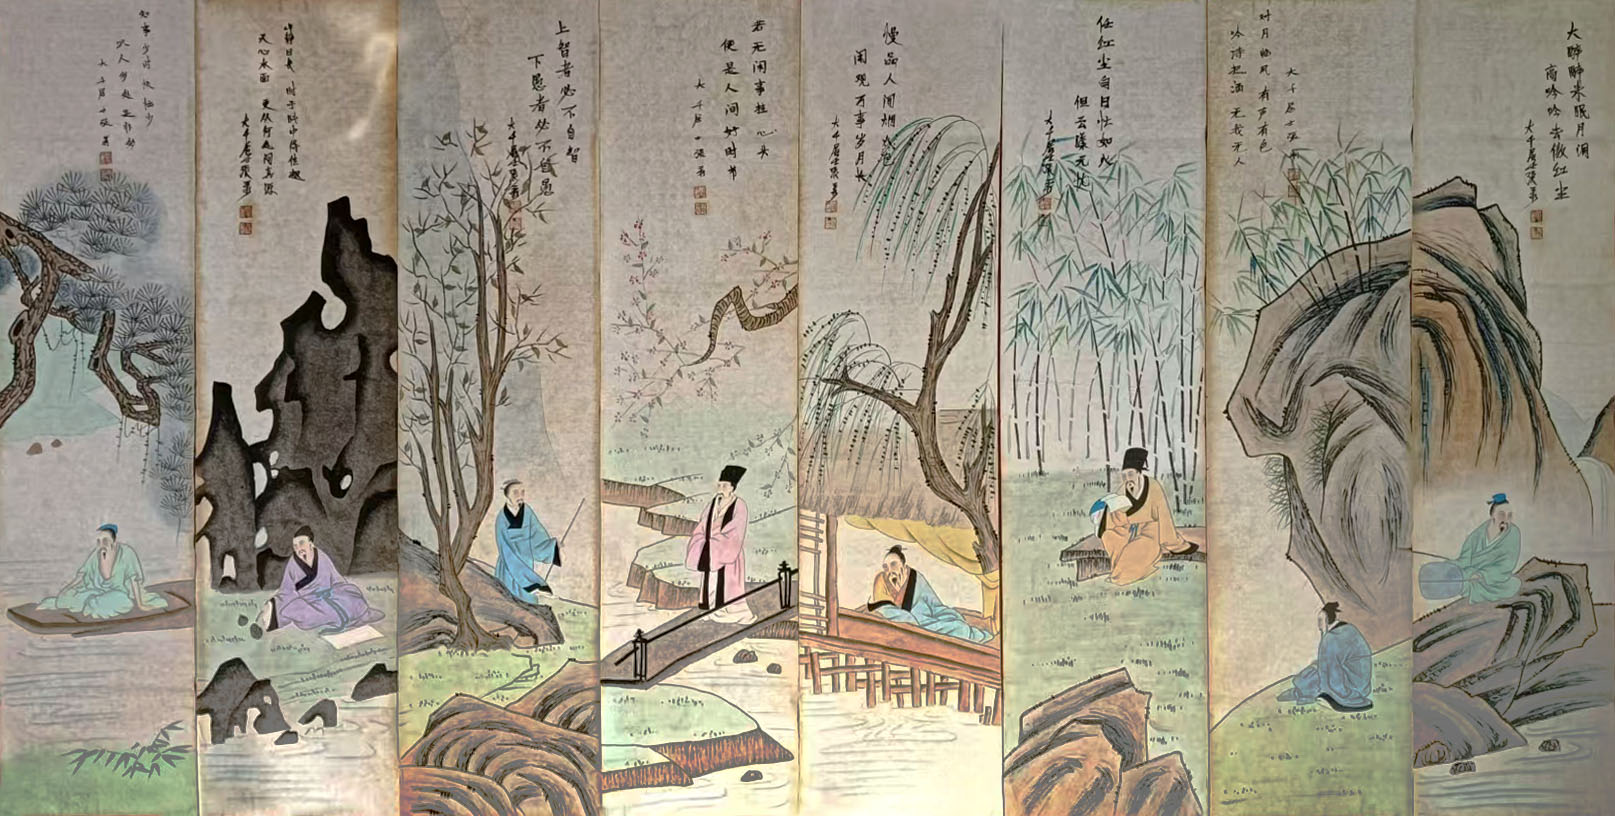 大醉醉来眠月洞
高吟吟去傲红尘
大千居士张爰
对月临风有声有色
吟诗把酒无我无人
大千居士张
任红尘白日忙如火
但云深无忧
大千居士张爰
慢品人间烟火色
闲观万事岁月长
大千居士张爰
若无闲事挂心头
便是人间好时节
大千居士张爰
上智者必不自智
下愚者必不自愚
大千居士张爰
山静日长
天心水面
大千居士张爰
知事少时烦恼少
识人多处是非多
大千居士张爰